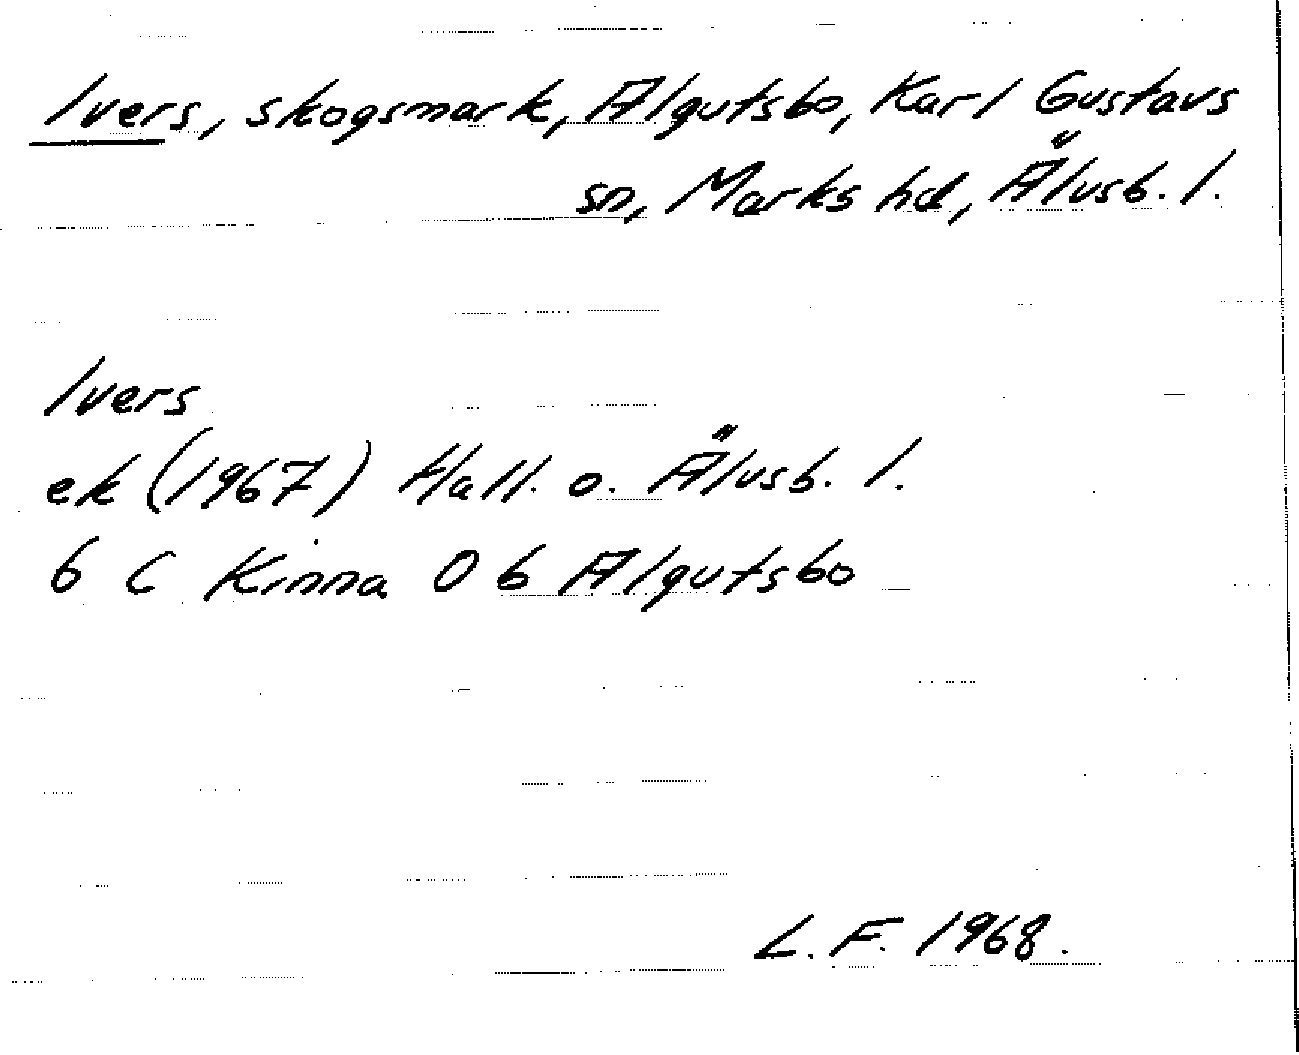 Ivers, skogsmark, Algutsbo, Karl Gustavs
sn, Marks hd, Älvsb. l.
Ivers
ek (1967) Hall. o. Älvsb. l.
6 C Kinna 0 6 Algutsbo
L. F. 1968.